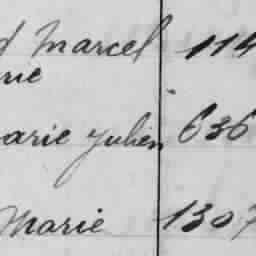 d Marcel 114
rie
arie Julien 636
Marie 1307